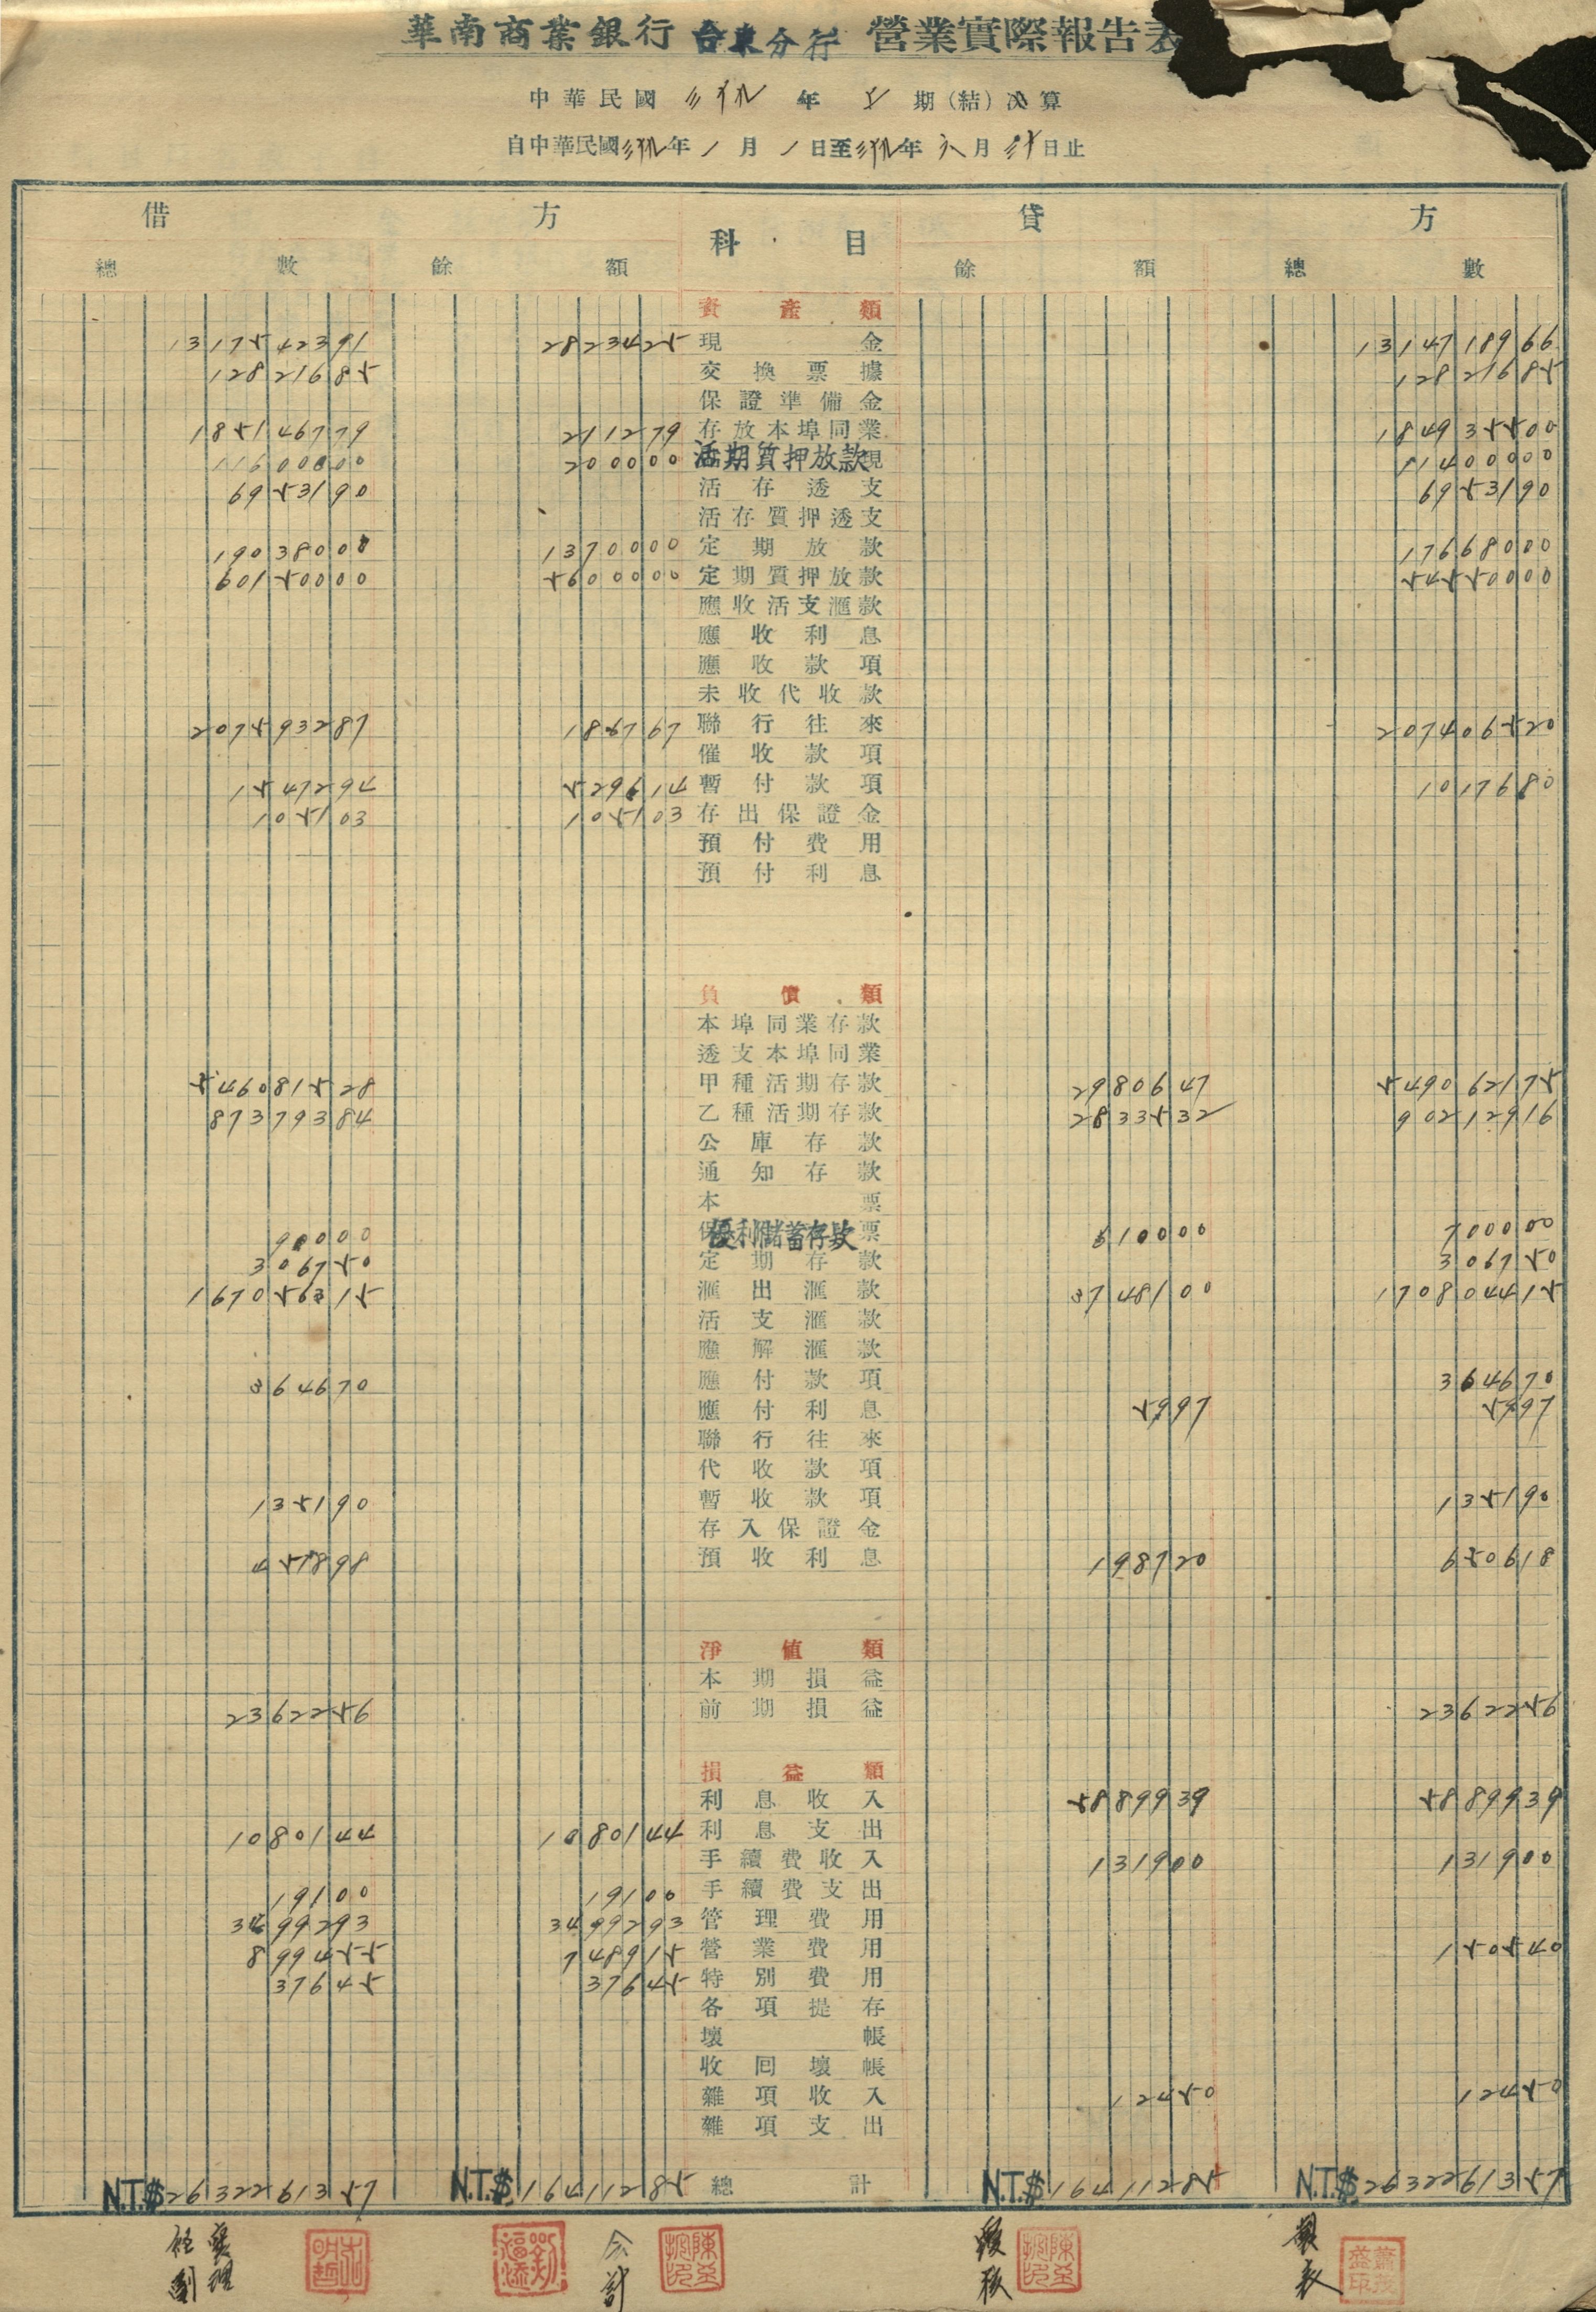 華南商業銀行 台東分行 營業實際報告表
中華民國 三十九 年 上 期(結)決算
自中華民國三十九年 一 月 一 日至三十九年 六 月 三十日止
借 方 科 目 貸 方
總 數 餘 額 餘 額 總 數
資產類
1317542391 2823425 現金 1314718966
12821685 交換票據 12821685
保證準備金
185146779 211279 存放本埠同業 184935500
11600000 200000 活期質押放款 11400000
6953190 活存透支 6953190
活存質押透支
19038000 1370000 定期放款 17668000
60150000 5600000 定期質押放款 54550000
應收活支滙款
應收利息
應收款項
未收代收款
207593287 186767 聯行往來 207406520
催收款項
1547294 529614 暫付款項 1017680
105103 105103 存出保證金
預付費用
預付利息
負債類
本埠同業存款
透支本埠同業
546081528 甲種活期存款 2980647 549062175
87379384 乙種活期存款 2833532 90212916
公庫存款
通知存款
本票
90000 優利儲蓄存款 610000 700000
306750 定期存款 306750
167056315 滙出滙款 3748100 170804415
活支滙款
應解滙款
364670 應付款項 364670
應付利息 5997 5997
聯行往來
代收款項
135190 暫收款項 135190
存入保證金
451898 預收利息 198720 650618
淨值類
本期損益
2362256 前期損益 2362256
損益類
利息收入 5889939 5889939
1080144 1080144 利息支出
手續費收入 131900 131900
19100 19100 手續費支出
3499293 3499293 管理費用
899455 748915 營業費用 150540
37645 37645 特別費用
各項提存
壞帳
收回壞帳
雜項收入 12450 12450
雜項支出
N.T.$2632261357 N.T.$16411285 總計 N.T.$16411285 N.T.$2632261357
襄理 會計 覆核 製表